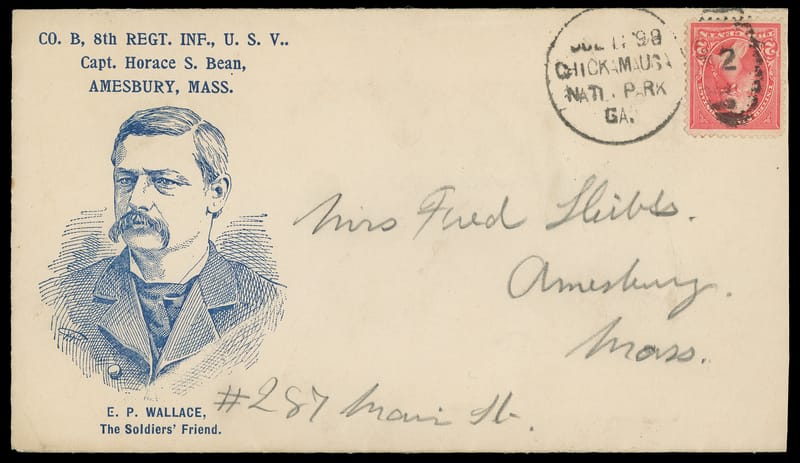 CO. B, 8th REGT. INF., U. S. V..
Capt. Horace S. Bean,
AMESBURY, MASS.
CHICKAMAUGA
NAT'L PARK
GA.
2
Mrs Fred
Amesbury.
Mass.
#287 Main St.
E. P. WALLACE,
The Soldiers' Friend.